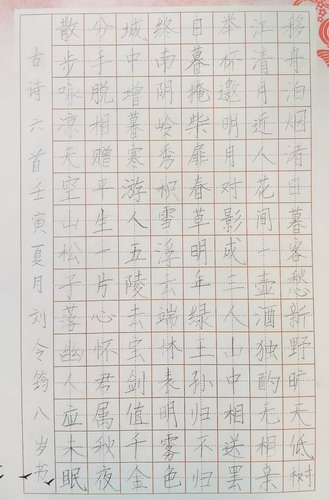 移舟泊烟渚日暮客愁新野旷天低树
江清月近人花间一壶酒独酌无相亲
举杯邀明月对影成三人山中相送罢
日暮掩柴扉春草明年绿王孙归不归
终南阴岭秀积雪浮云端林表明霁色
城中增暮寒游人五陵去宝剑值千金
分手脱相赠平生一片心怀君属秋夜
散步咏凉天空山松子落幽人应未眠
古诗六首壬寅夏月刘令筠八岁书